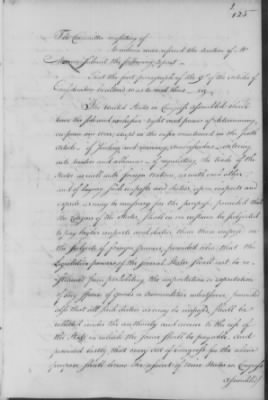 1
125
The Committee consisting of
to whom was referred the motion of Mr
Monroe submit the following report
That the first paragraph of the 9th of the articles of
Confederation be altered so as to read thus viz
The united States in Congress assembled shall
have the sole and exclusive right and power of determining
on peace and war, except in the cases mentioned in the sixth
article of sending and receiving ambassadors entering
into treaties and alliances of regulating the trade of the
States as well with foreign nations as with each other
and of laying such imposts and duties upon imports and
exports as may be necessary for the purpose provided that
the Citizens of the States shall in no instance be subjected
to pay higher imposts and duties than those imposed on
the subjects of foreign powers, provided also that the
Legislative powers of the several States shall not be re-
strained from prohibiting the importation or exportation
of any species of goods or commodities whatsoever, provided
also that all such duties as may be imposed, shall be
collected under the authority and accrue to the use of
the State in which the same shall be payable, And
provided lastly that every act of Congress for the above
purpose shall have the assent of nine States in Congress
assembled